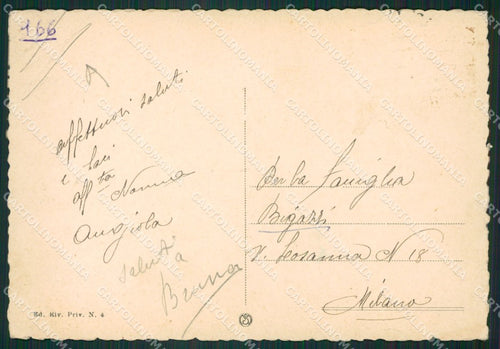 166
affettuosi saluti
e baci
aff.ta Nonna
Angiola
saluti
a
Bruna
Per la famiglia
Bigazzi
V. Losanna N 18
Milano
Ed. Riv. Priv. N. 4
CARTOLINOMANIA